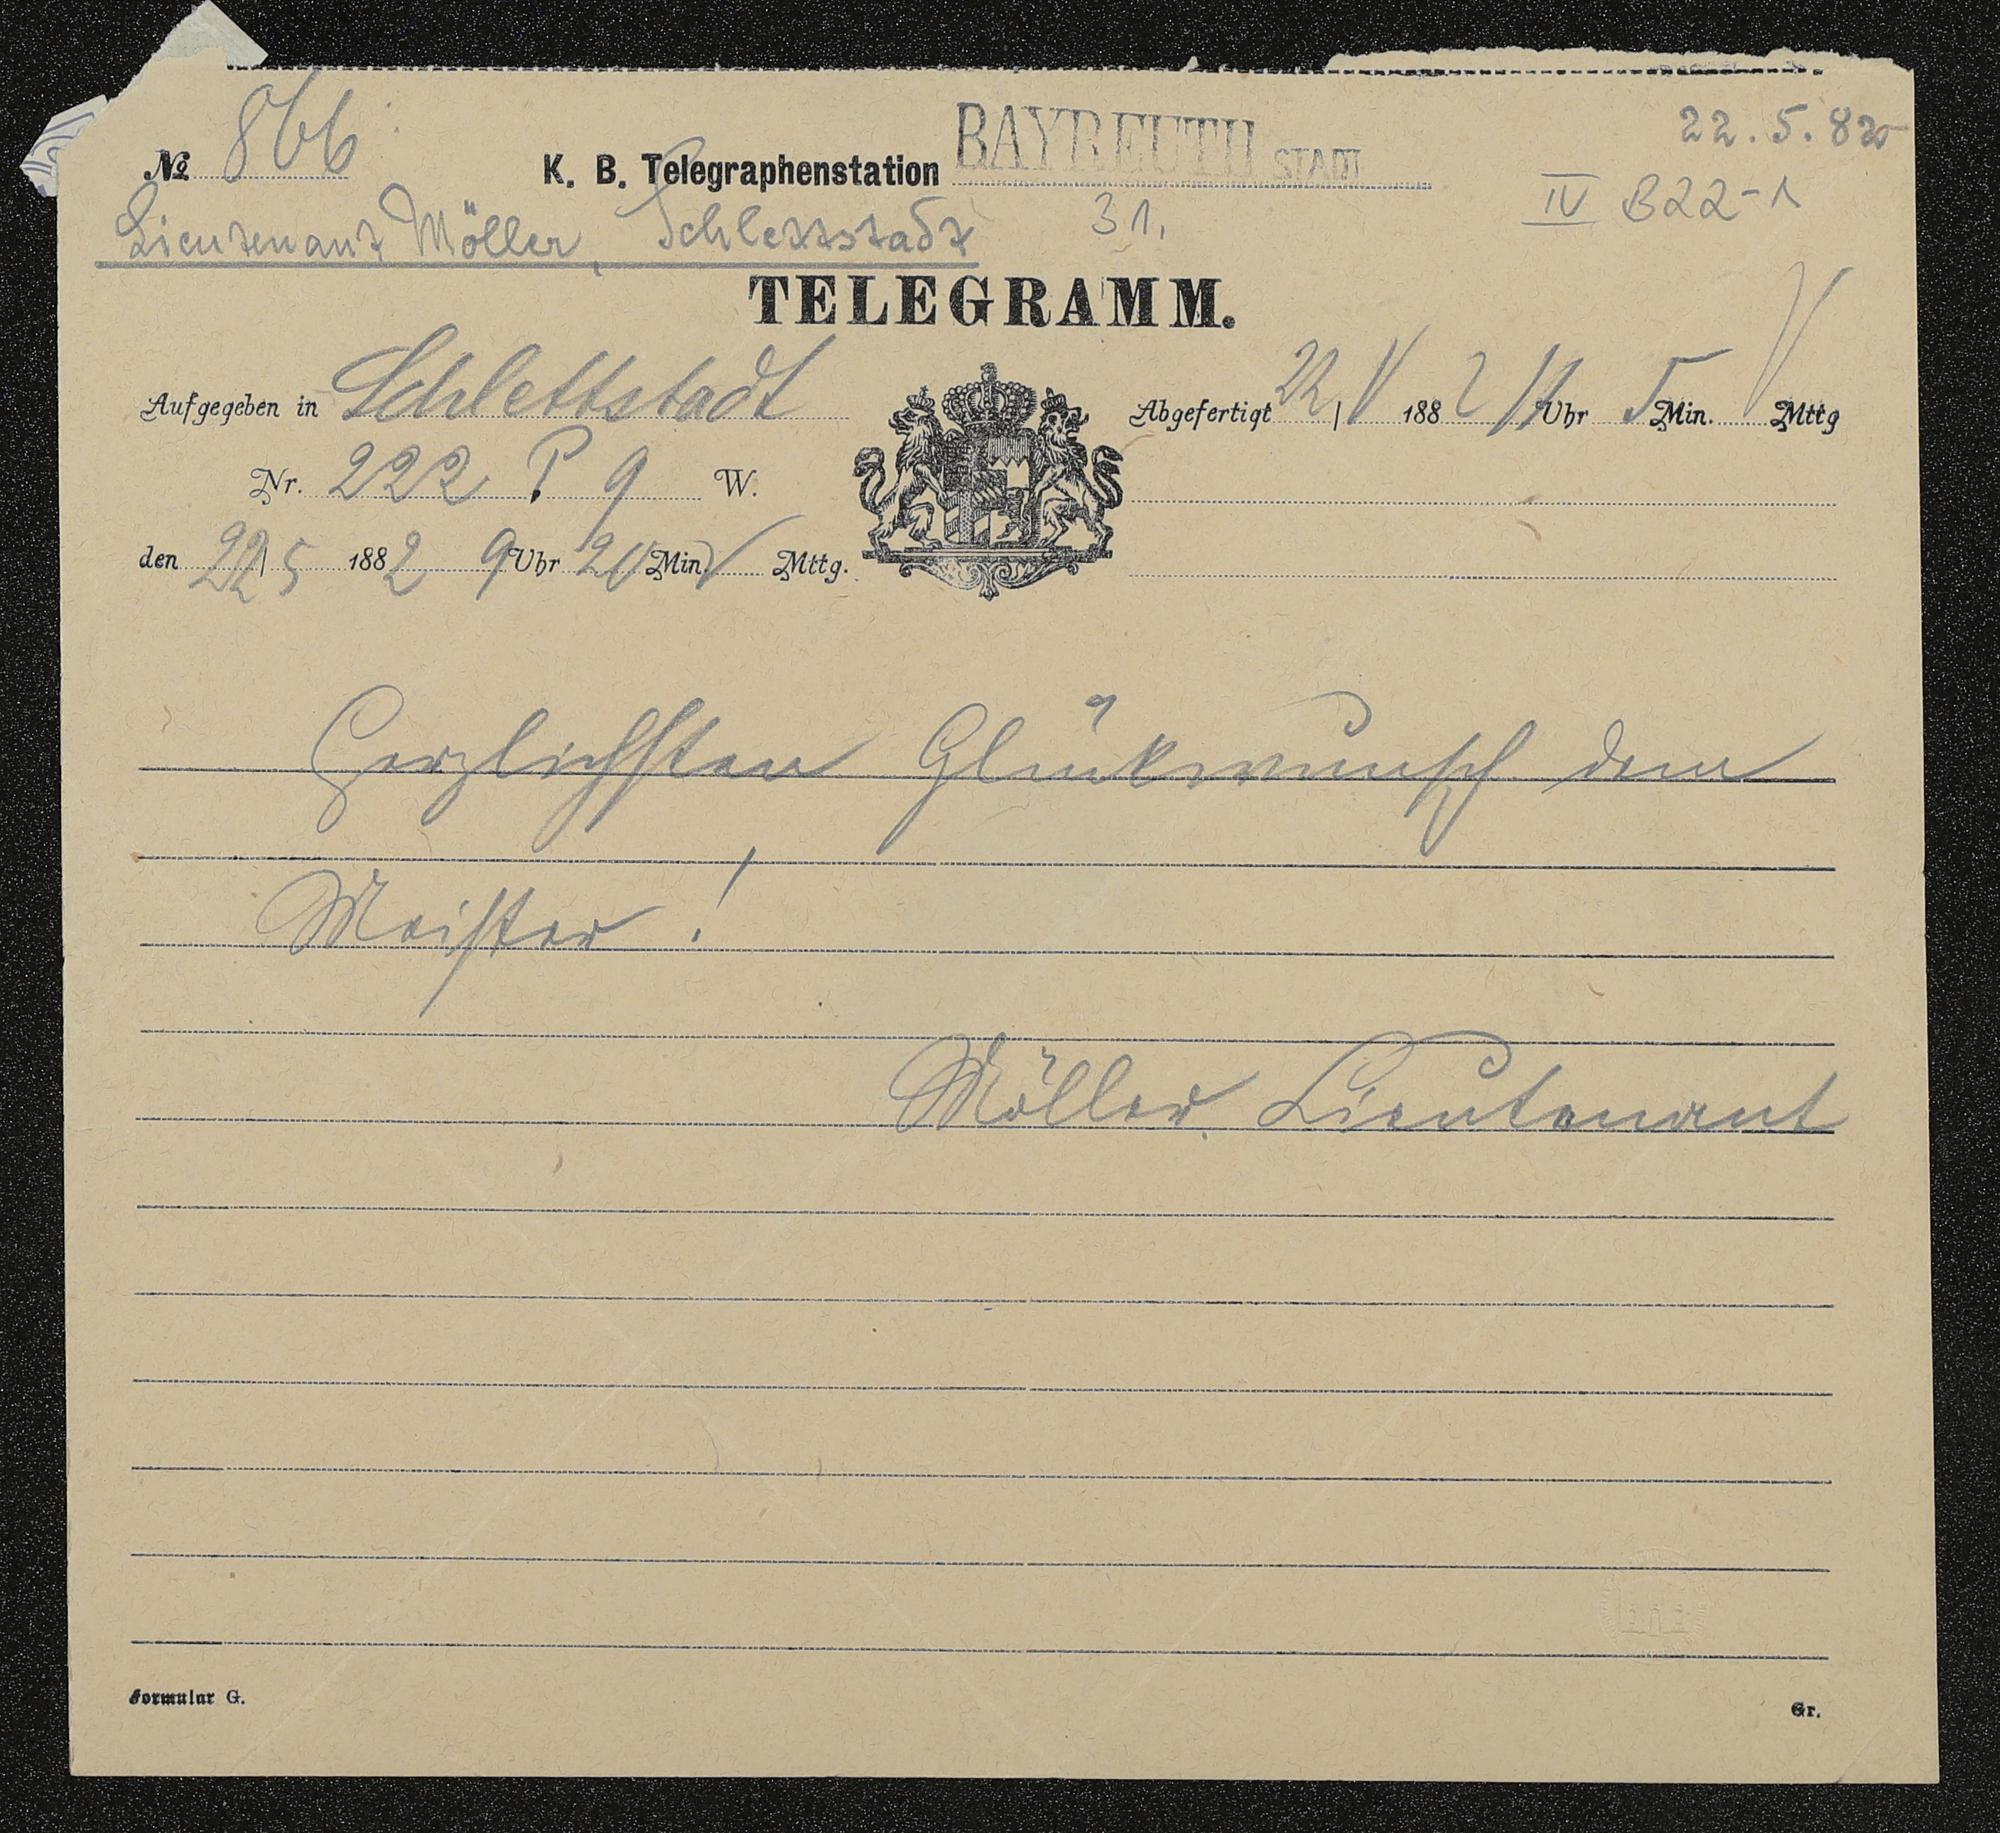 № 866 K. B. Telegraphenstation BAYREUTH STADT 22.5.82
Lieutenant Möller, Schlettstadt 31. IV B 22-1
TELEGRAMM.
Aufgegeben in Schlettstadt Abgefertigt 22/V 1882 11 Uhr 5 Min. V Mttg
Nr. 222 P 9 W.
den 22/5 1882 9 Uhr 20 Min. V Mttg.
Herzlichsten Glückwunsch dem
Meister!
Möller, Lieutenant
Formular G. Gr.